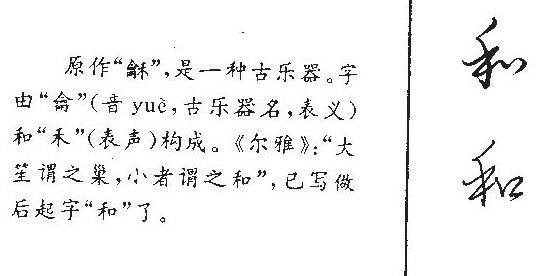 原作“龢”，是一种古乐器。字
由“龠”（音 yuè，古乐器名，表义）
和“禾”（表声）构成。《尔雅》：“大
笙谓之巢，小者谓之和”，已写做
后起字“和”了。
和
和